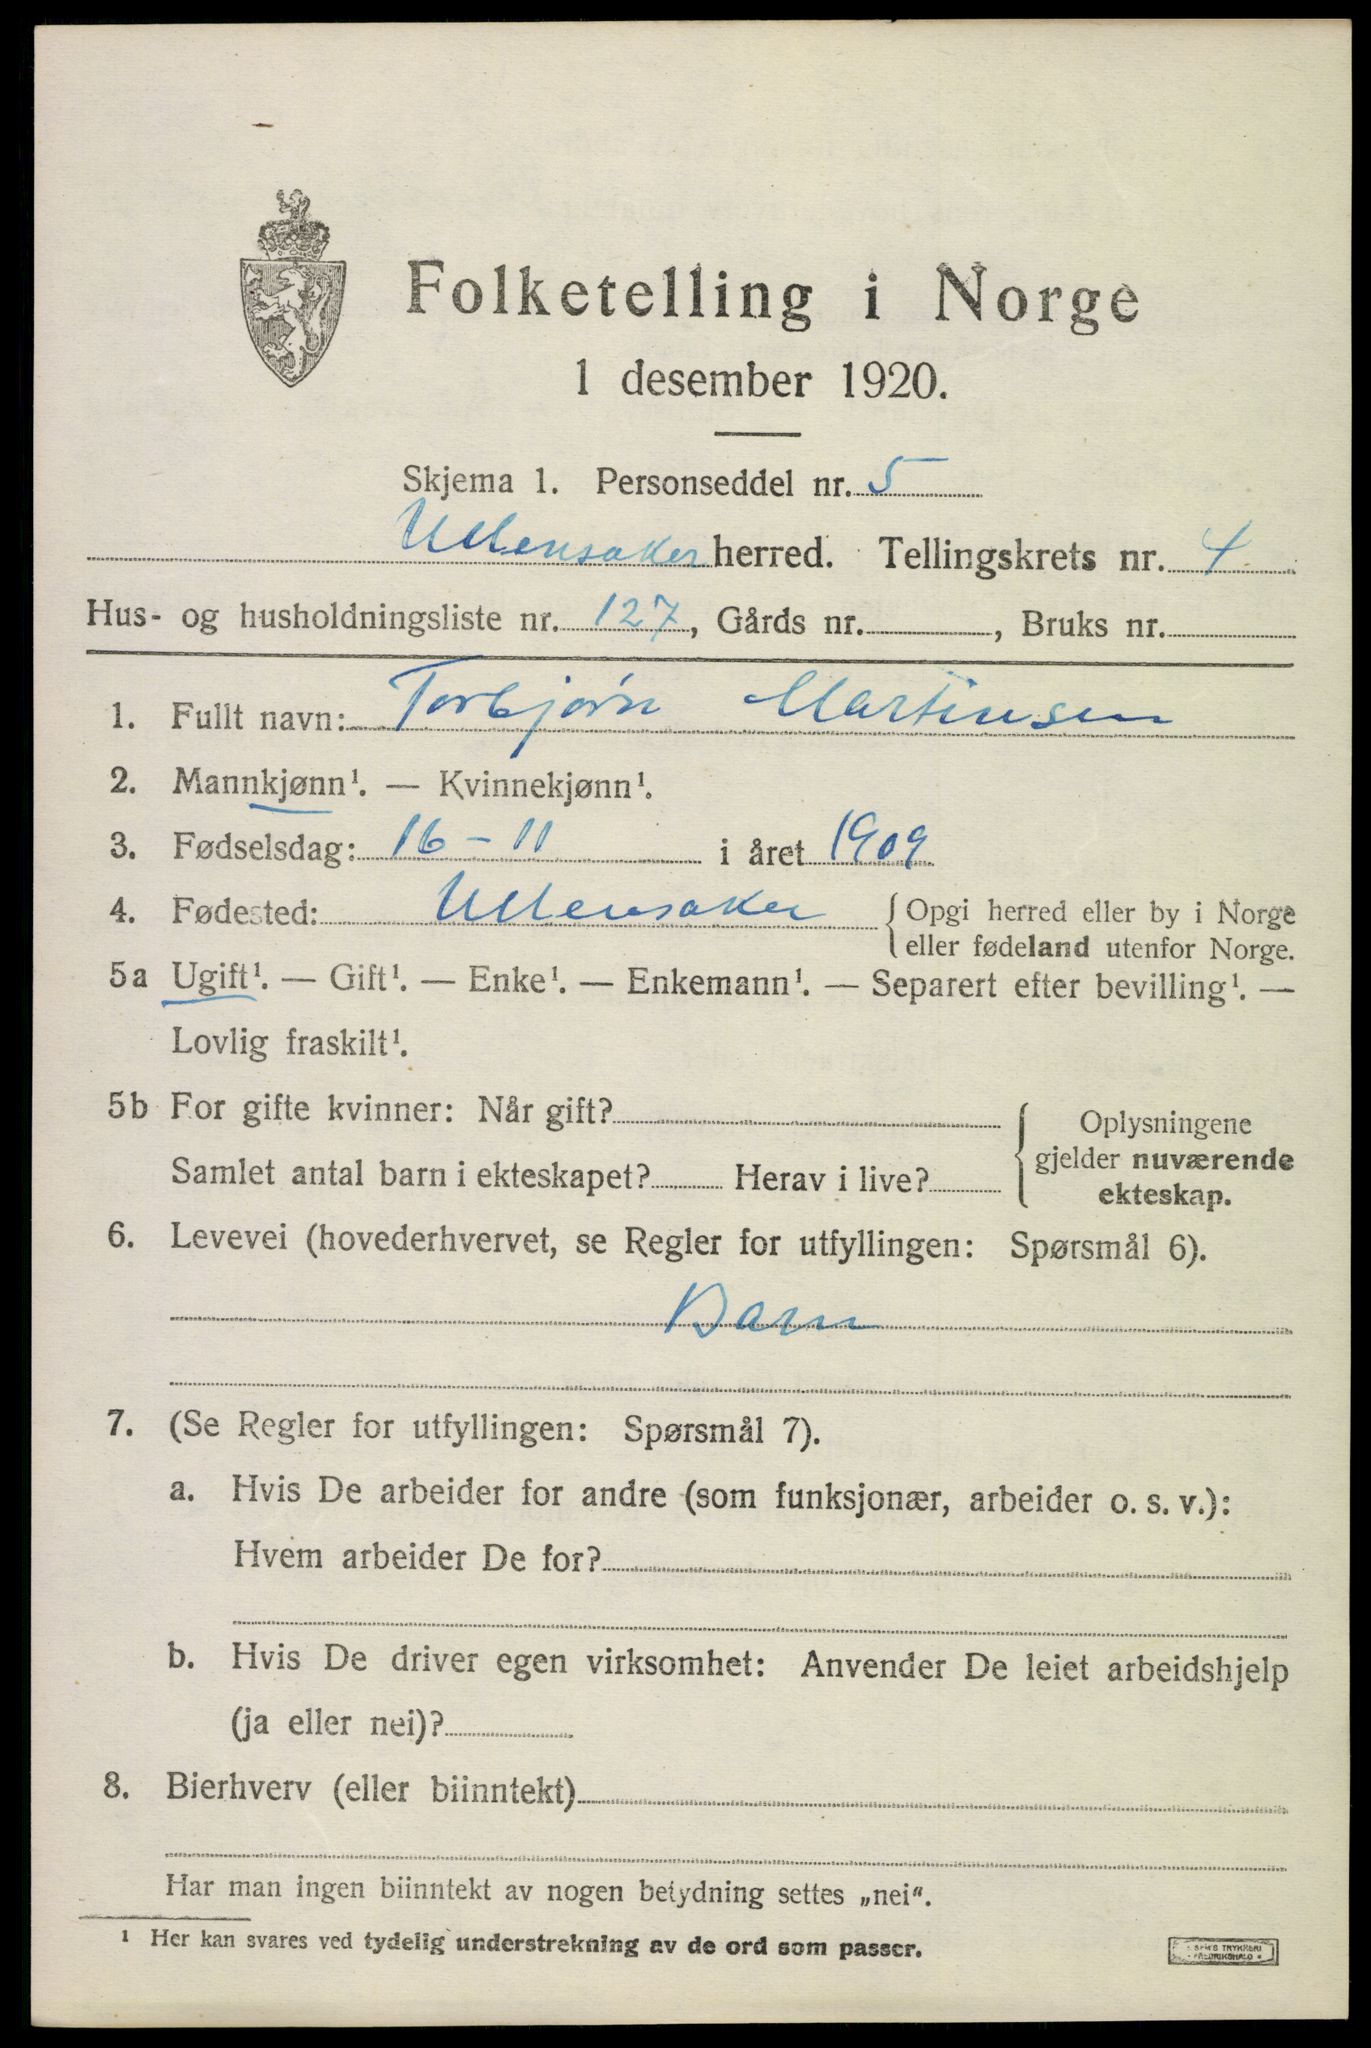 Folketelling i Norge
1 desember 1920.
Skjema 1. Personseddel nr. 5
Ullensaker herred. Tellingskrets nr. 4
Hus- og husholdningsliste nr. 127, Gårds nr. , Bruks nr.
1. Fullt navn: Torbjørn Martinsen
2. Mannkjønn¹. — Kvinnekjønn¹.
3. Fødselsdag: 16 - 11 i året 1909
4. Fødested: Ullensaker { Opgi herred eller by i Norge
eller fødeland utenfor Norge.
5a Ugift¹. — Gift¹. — Enke¹. — Enkemann¹. — Separert efter bevilling¹. —
Lovlig fraskilt¹.
5b For gifte kvinner: Når gift? { Oplysningene
Samlet antal barn i ekteskapet? Herav i live? gjelder nuværende
ekteskap.
6. Levevei (hovederhvervet, se Regler for utfyllingen: Spørsmål 6).
Barn
7. (Se Regler for utfyllingen: Spørsmål 7).
a. Hvis De arbeider for andre (som funksjonær, arbeider o. s. v.):
Hvem arbeider De for?
b. Hvis De driver egen virksomhet: Anvender De leiet arbeidshjelp
(ja eller nei)?
8. Bierhverv (eller biinntekt)
Har man ingen biinntekt av nogen betydning settes „nei“.
¹ Her kan svares ved tydelig understrekning av de ord som passer.
TRYKKERI
FREDRIKSHALD